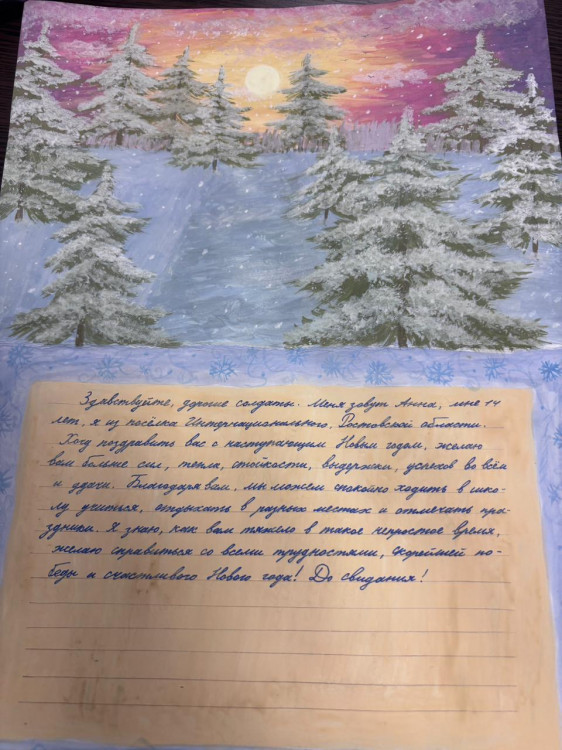 Здравствуйте, дорогие солдаты. Меня зовут Анна, мне 14
лет, я из посёлка Интернационального, Ростовской области.
Хочу поздравить вас с наступающим Новым годом, желаю
вам больше сил, тепла, стойкости, выдержки, успехов во всём
и удачи. Благодаря вам, мы можем спокойно ходить в шко-
лу учиться, отдыхать в разных местах и отмечать пра-
здники. Я знаю, как вам тяжело в такое непростое время,
желаю справиться со всеми трудностями, скорейшей по-
беды и счастливого Нового года! До свидания!